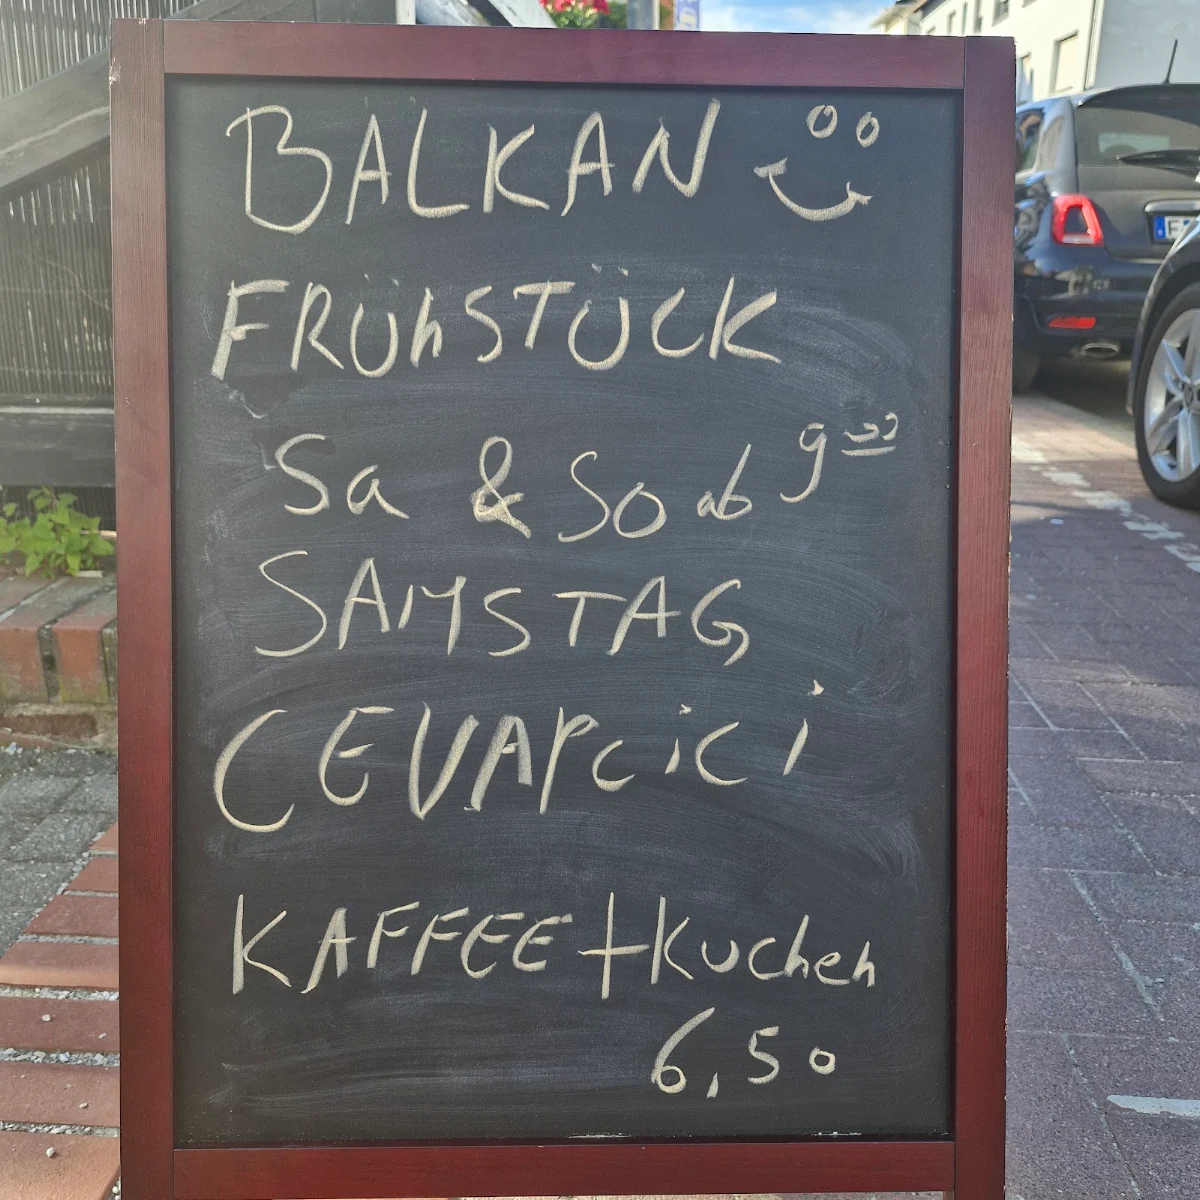 BALKAN
FRÜhSTÜCK
Sa & So ab 9⁰⁰
SAMSTAG
CEVAPcici
KAFFEE + Kuchen
6,50